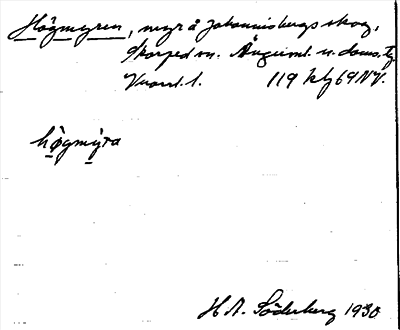 Högmyren, myr å Johannisbergs skog,
Skorped sn. Ångerml. n. doms.
Kvart. 1. 119 kbl 69 NV.
högmýra
H. A. Söderberg 1930